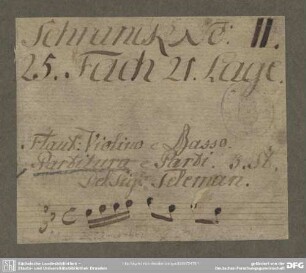 Schranck No: II.
25. Fach 21. Lage.
Flaut: Violino e Basso.
Partitura e Parti. 3. St.
Del Sigr. Teleman.
Sächsische Landesbibliothek –
Staats- und Universitätsbibliothek Dresden
gefördert von der
Deutschen Forschungsgemeinschaft
DFG